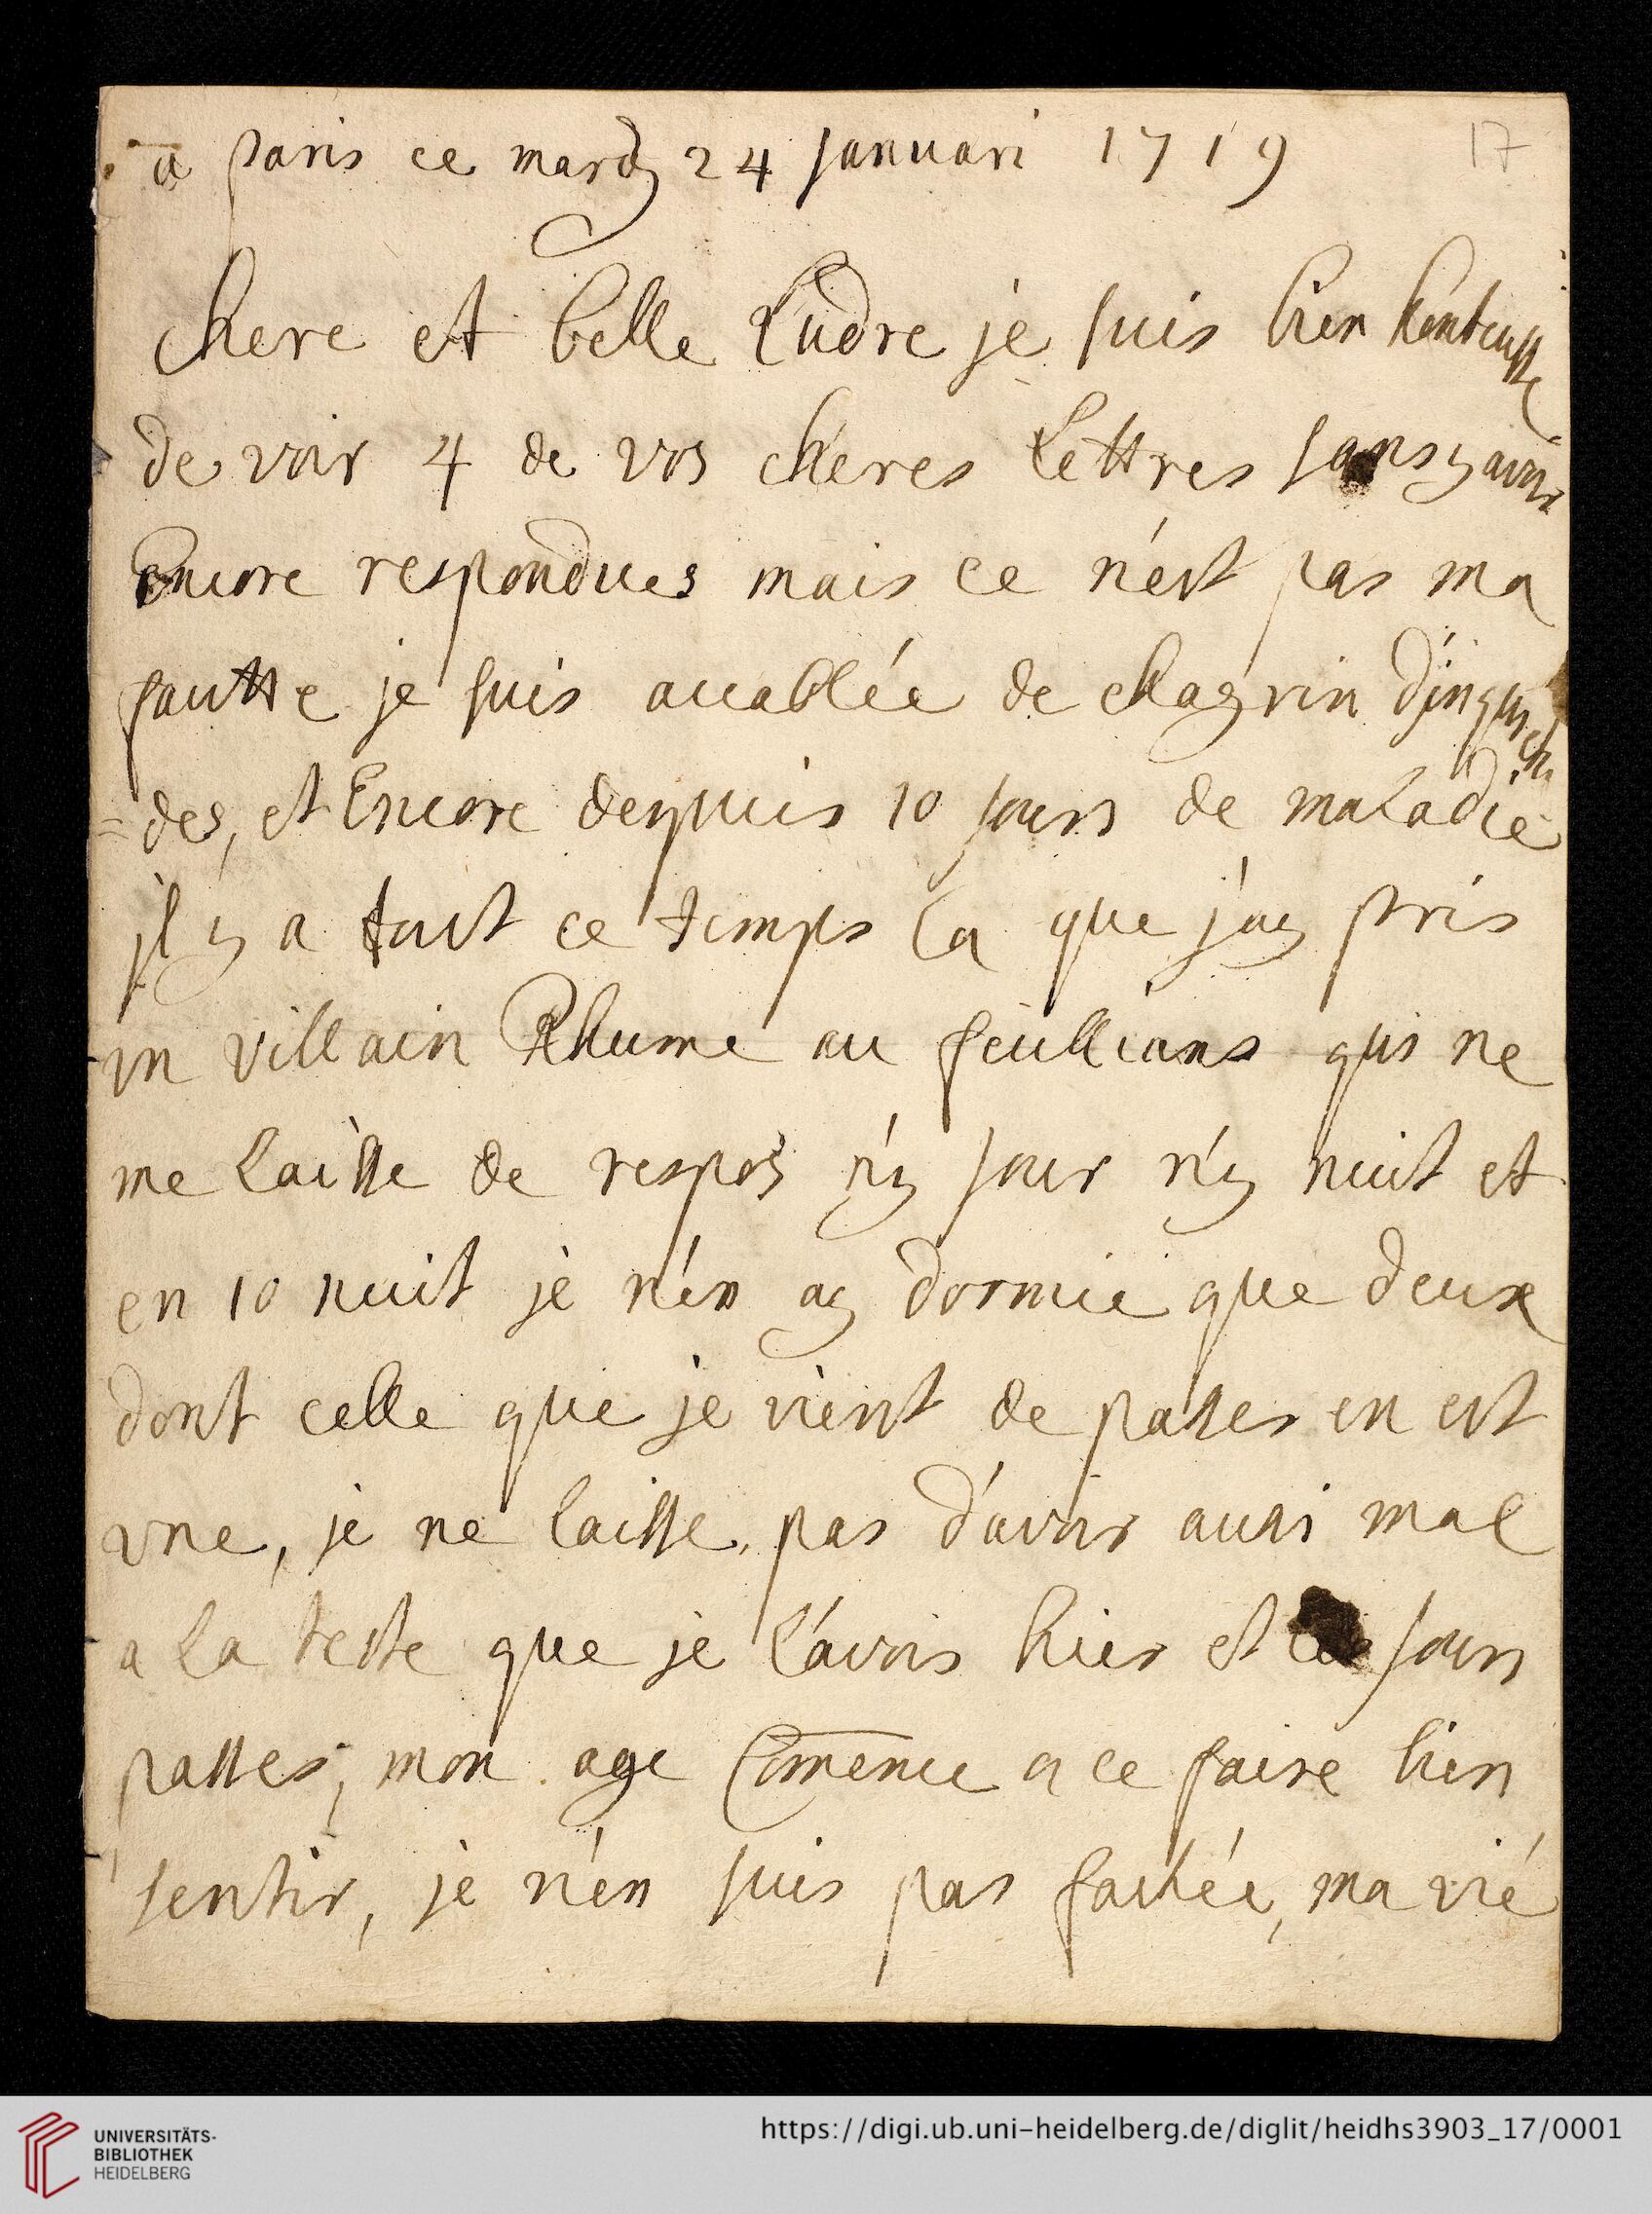 a paris ce mardy 24 januari 1719
17
chere et belle Ludre je suis bien honteusse
de voir 4 de vos cheres Lettres sans y avoir
Encore respondues mais ce n'est pas ma
fautte je suis accablée de chagrin d'inquietu
=des, et Encore depuis 10 jours de maladie
jl y a tout ce temps la que j'ay pris
un villain Rhume au feuillians qui ne
me Laisse de respos n'y jour n'y nuit et
en 10 nuit je n'en ay dormie que deux
dont celle que je vient de passer en est
une, je ne laisse pas d'avoir aussi mal
a La teste que je L'avois hier et ces jours
passes, mon age Comence a ce faire bien
sentir, je n'en suis pas fachée, ma vie
UNIVERSITÄTS-
BIBLIOTHEK
HEIDELBERG
https://digi.ub.uni-heidelberg.de/diglit/heidhs3903_17/0001